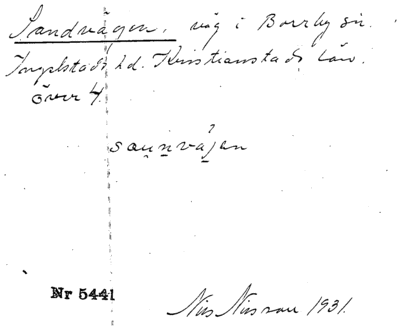 Sandvägen, väg i Borrby sn.
Ingelstads hd. Kristianstads län.
över 4.
saunvåjen
Nr 5441
Nils Nilsson 1931.